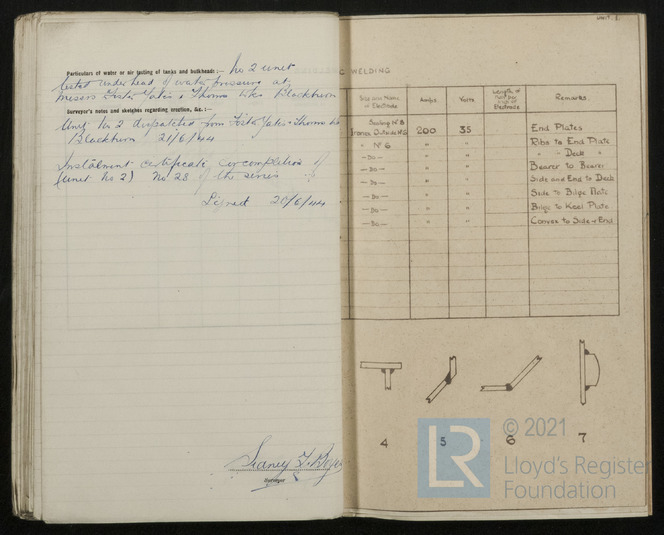 Particulars of water or air testing of tanks and bulkheads :— No 2 unit
tested under head of water pressure at
Messrs Foster Yates & Thoms Ltd Blackburn
Surveyor's notes and sketches regarding erection, &c. :—
Unit No 2 dispatched from Foster Yates & Thoms Ltd
Blackburn 21/6/44
Instalment certificate on completion of
(unit No 2) No 28 of the series
Signed 20/6/44
Surveyor
UNIT. 2
WELDING
Size and Name of Electrode
Amps
Volts
Length of Run per of Electrode
Remarks
Sealing Nº 8
200 35 End Plates
" Nº 6 " " Ribs to End Plate
—Do— " " " - Deck "
—Do— " " Bearer to Bearer
—Do— " " Side and End to Deck
—Do— " " Side to Bilge Plate
—Do— " " Bilge to Keel Plate
—Do— " " Convex to Side & End
4 5 6 7
LR
© 2021
Lloyd's Register
Foundation